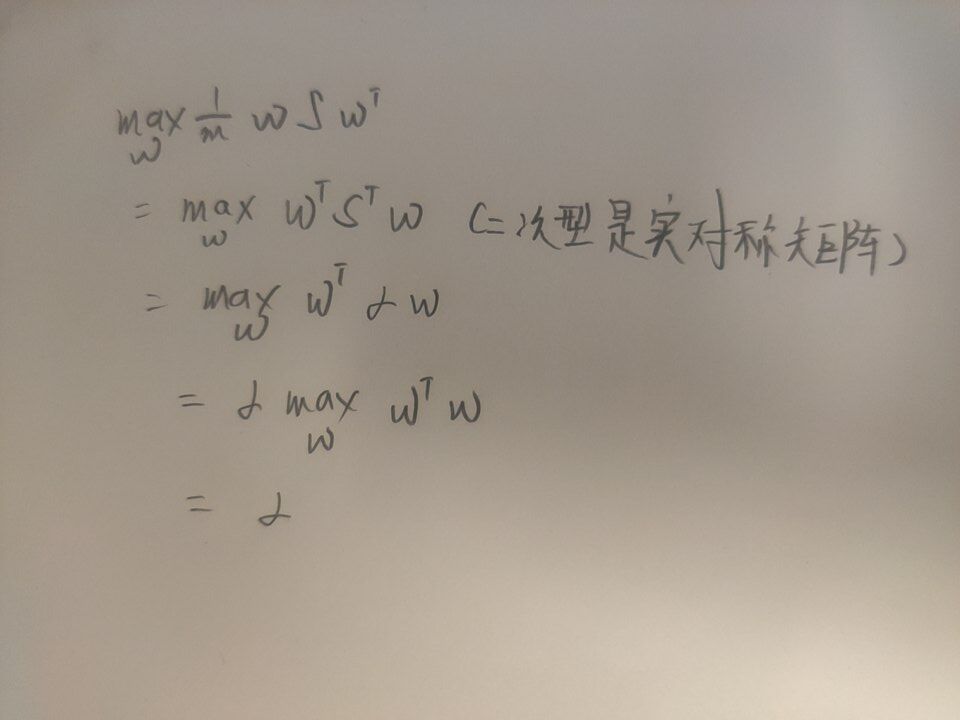 max_w 1/m w S w^T
= max_w w^T S^T w (二次型是实对称矩阵)
= max_w w^T α w
= α max_w w^T w
= α